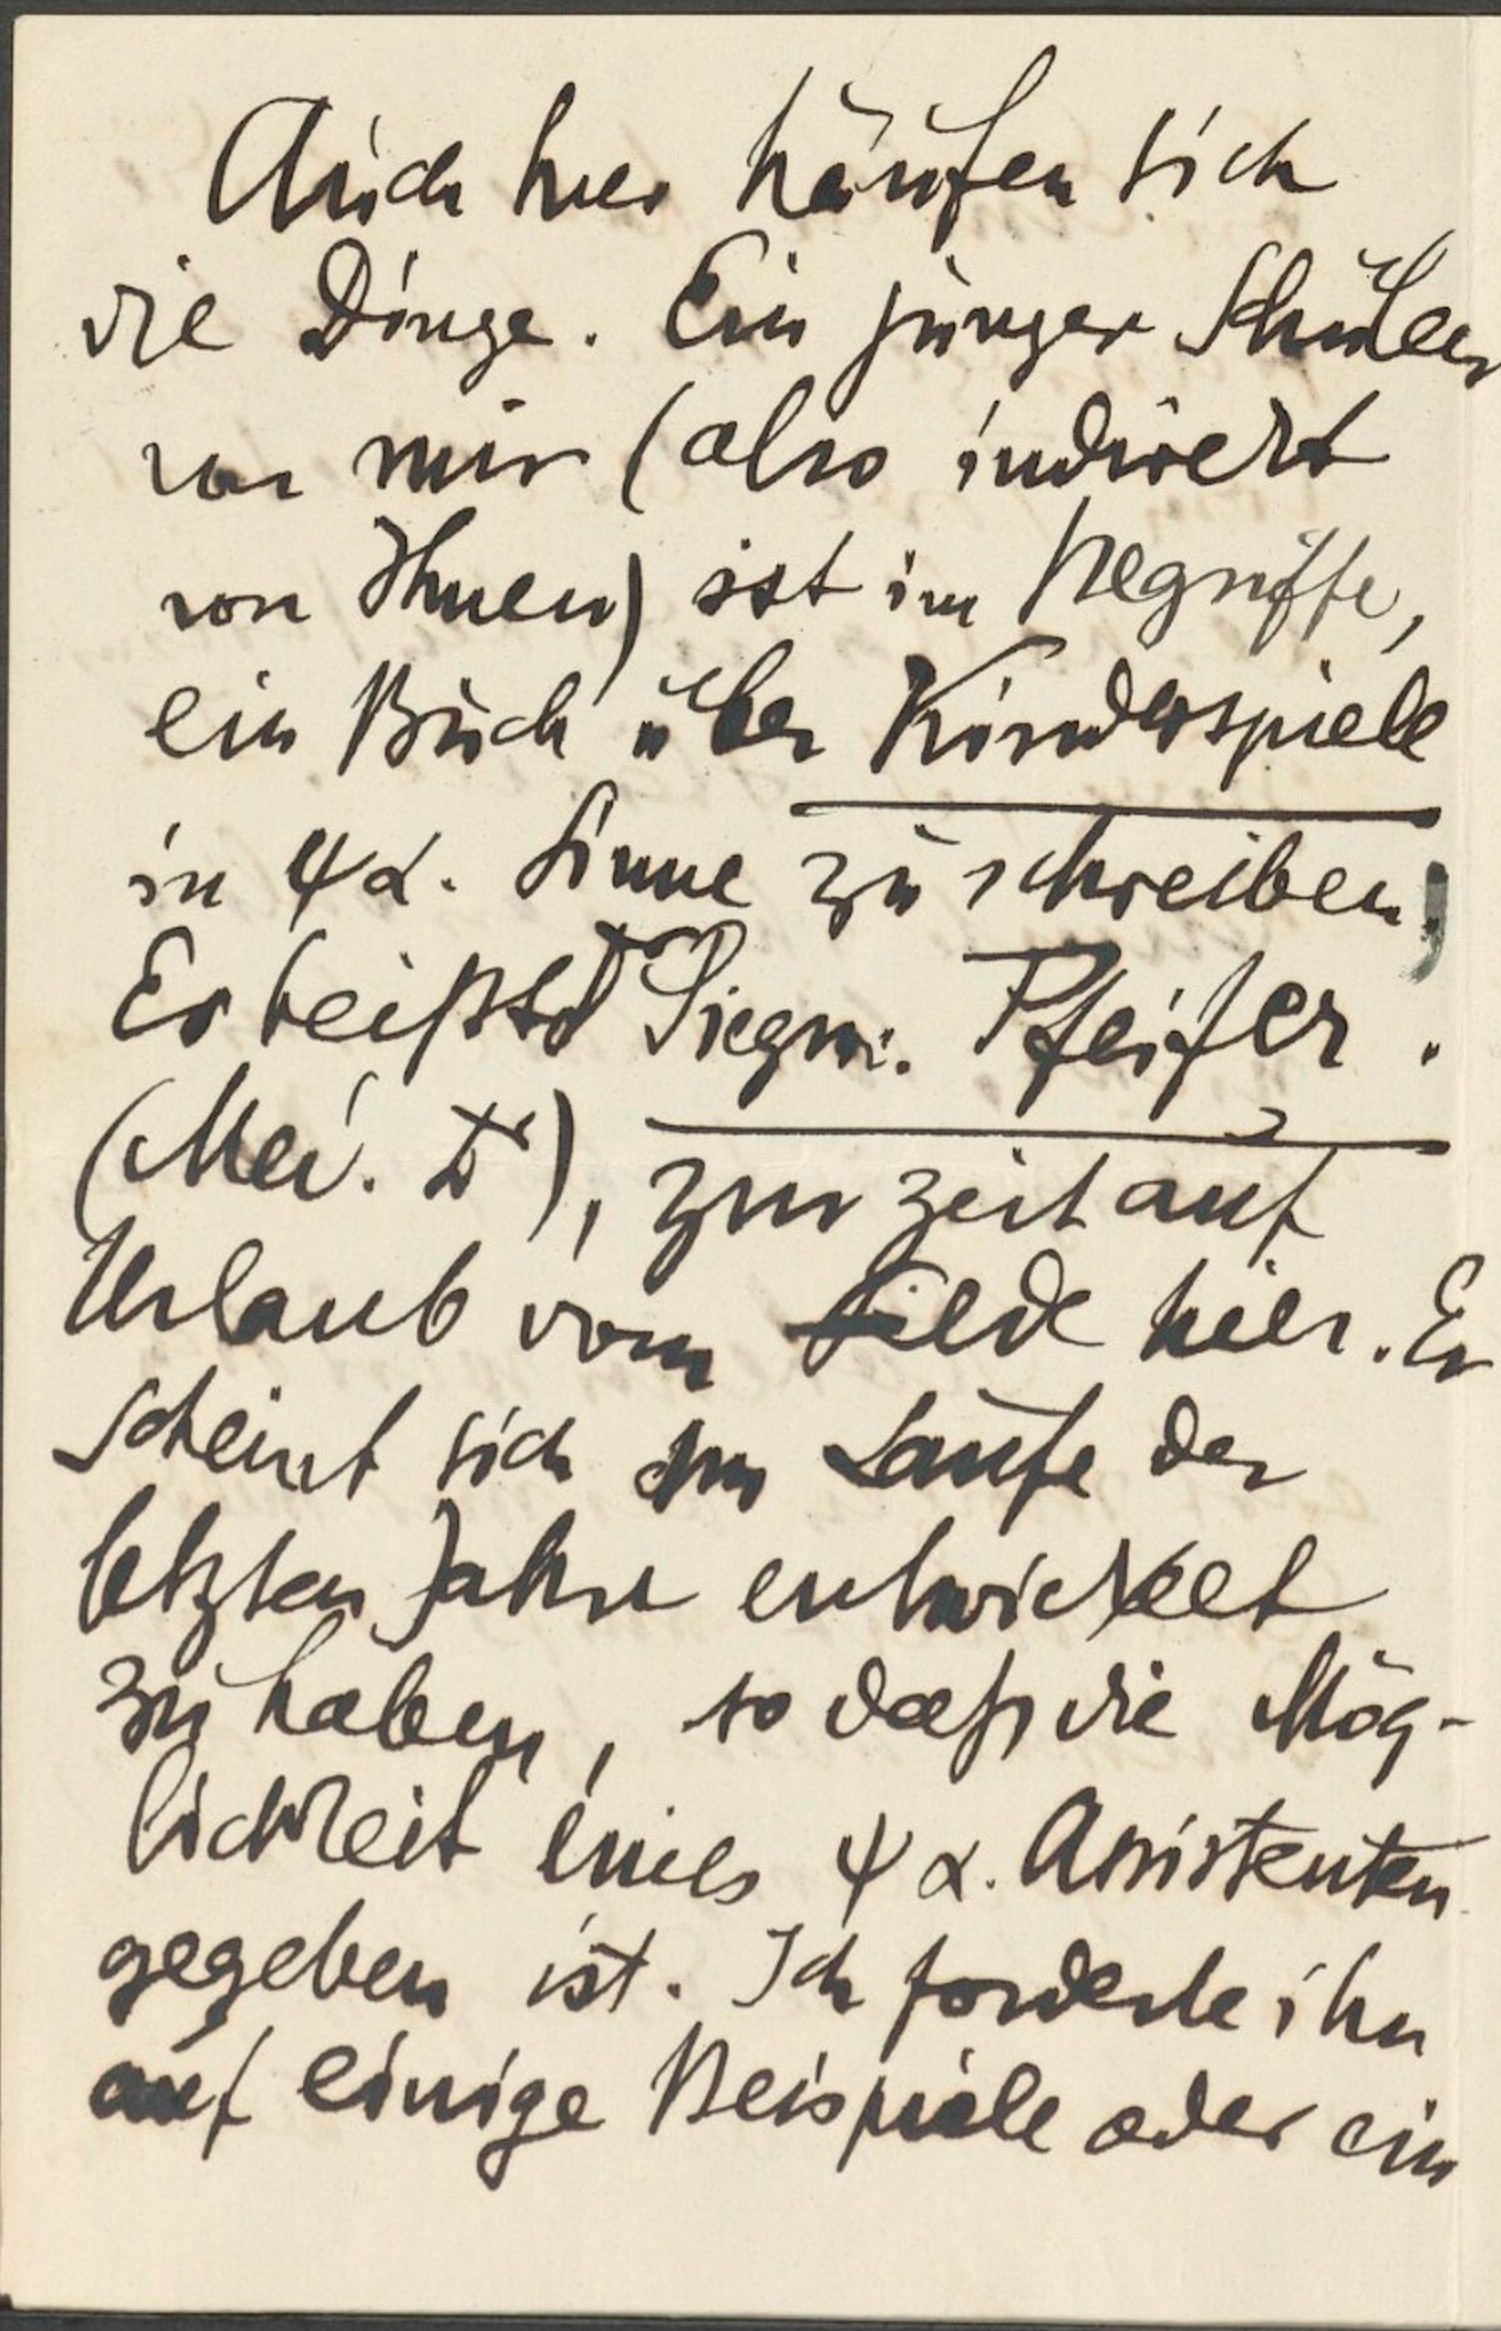 Auch hier häufen sich
die Dinge. Ein junger Schüler
von mir (also indirekt
von Ihnen) ist im Begriffe,
ein Buch über Kinderspiele
in ψα. Sinne zu schreiben;
Er heißt Dr Siegm. Pfeifer.
(Med. Dr), zur zeit auf
Urlaub vom Felde hier. Er
scheint sich im Laufe der
letzten Jahre entwickelt
zu haben, so daß die Mög-
lichkeit eines ψα. Assistenten
gegeben ist. Ich forderte ihn
auf einige Beispiele oder ein